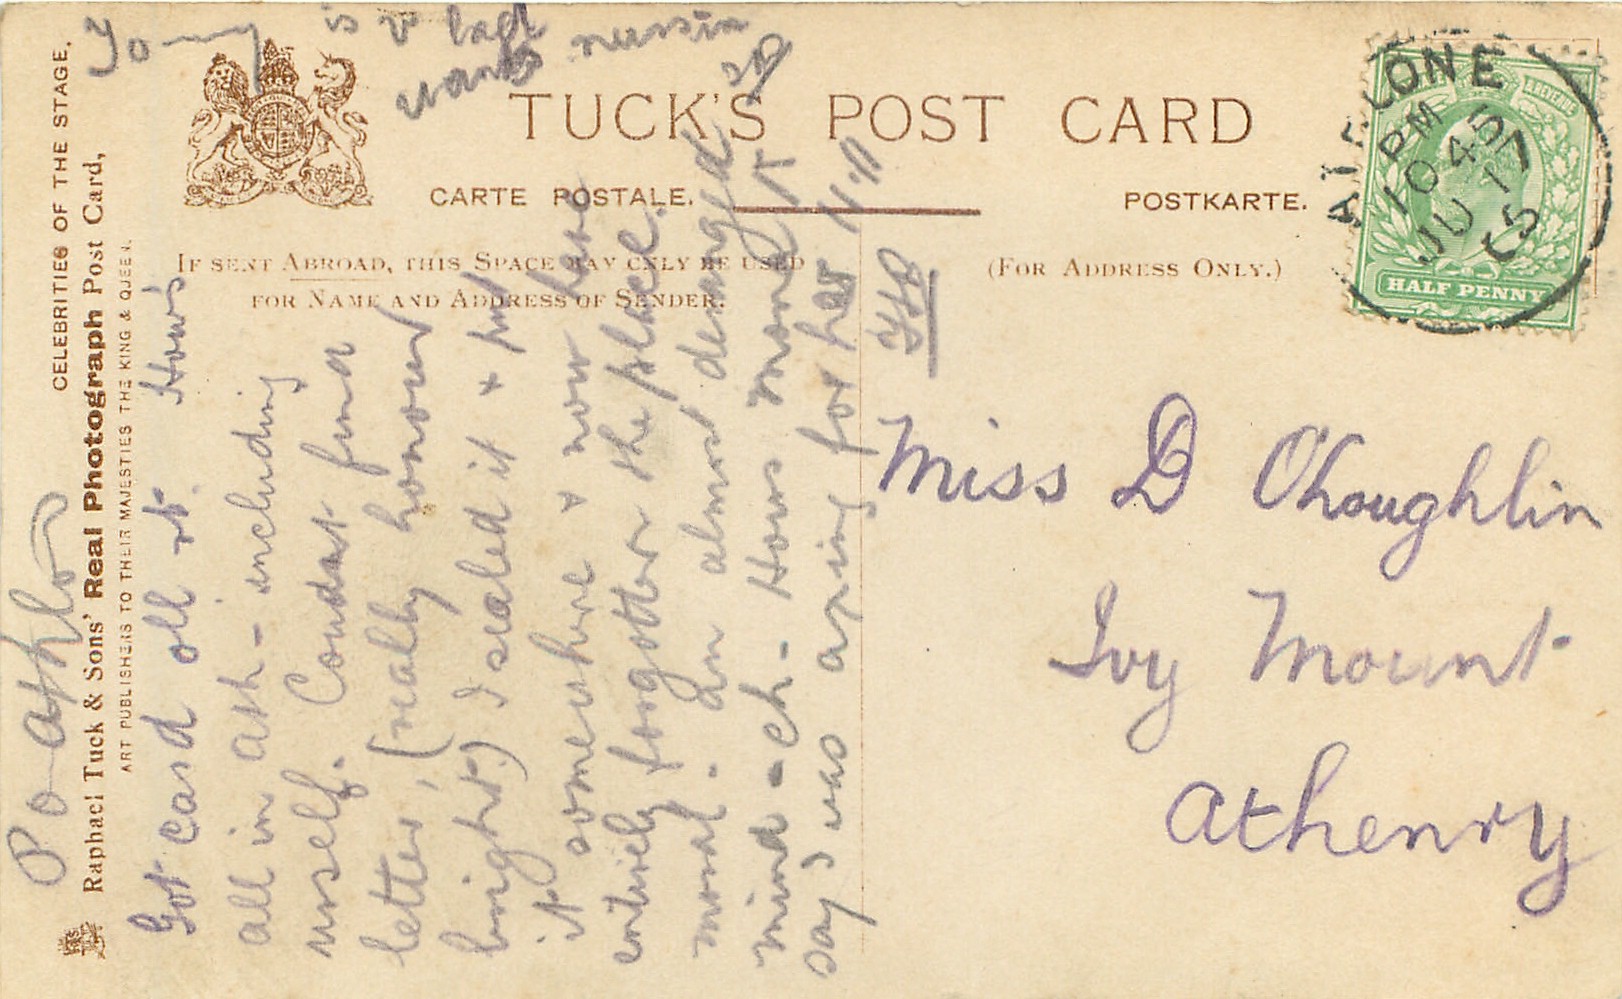 CELEBRITIES OF THE STAGE.
Raphael Tuck & Sons' Real Photograph Post Card,
ART PUBLISHERS TO THEIR MAJESTIES THE KING & QUEEN.
TUCK'S POST CARD
CARTE POSTALE.
POSTKARTE.
IF SENT ABROAD, THIS SPACE MAY ONLY BE USED
FOR NAME AND ADDRESS OF SENDER.
(FOR ADDRESS ONLY.)
ATHLONE
PM
10 45
JU 17
05
HALF PENNY
Miss D O'Loughlin
Ivy Mount
Athenry
P O Athlo
Got card all rt. How's
all in Ath - including
urself. Couldnt find
letter, (really honour
bright) I sealed it & put
it somewhere & now have
entirely forgotten the place.
mond. Im almost deranged
mind - eh - Hows mond It
say I was aping for her
is v bad
wants nursin